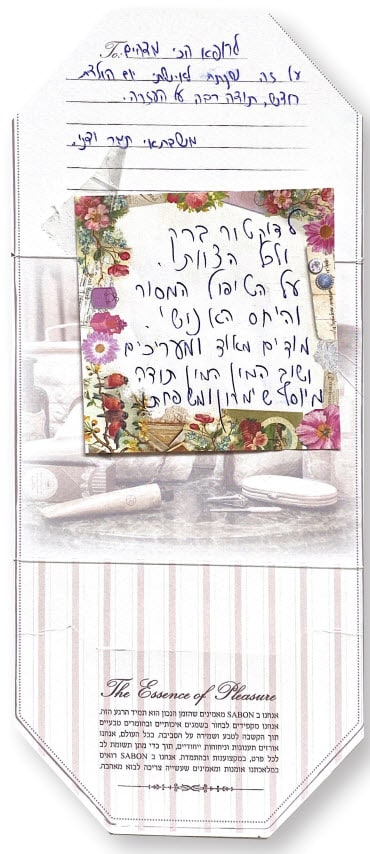 To: לרופא הכי מדהים
על זה שנתת לאישתי יום הולדת
חדש, תודה רבה על העזרה.
לדוקטור ברק
ולכל הצוות!
על הטיפול המסור
והיחס האנושי.
מודים מאוד ומעריכים
ושוב המון המון תודה
The Essence of Pleasure
אנחנו ב SABON מאמינים שהזמן הנכון הוא תמיד הרגע הזה.
אנחנו מקפידים לבחור בשמנים איכותיים ובחומרים טבעיים
תוך הקשבה לטבע ושמירה על הסביבה. בכל העולם, אנחנו
אורזים תענוגות וניחוחות ייחודיים, תוך כדי מתן תשומת לב
לכל פרט, במקצוענות ובהתמדה. אנחנו ב SABON רואים
במלאכתנו אומנות ומאמינים שעשייה צריכה לבוא מאהבה.